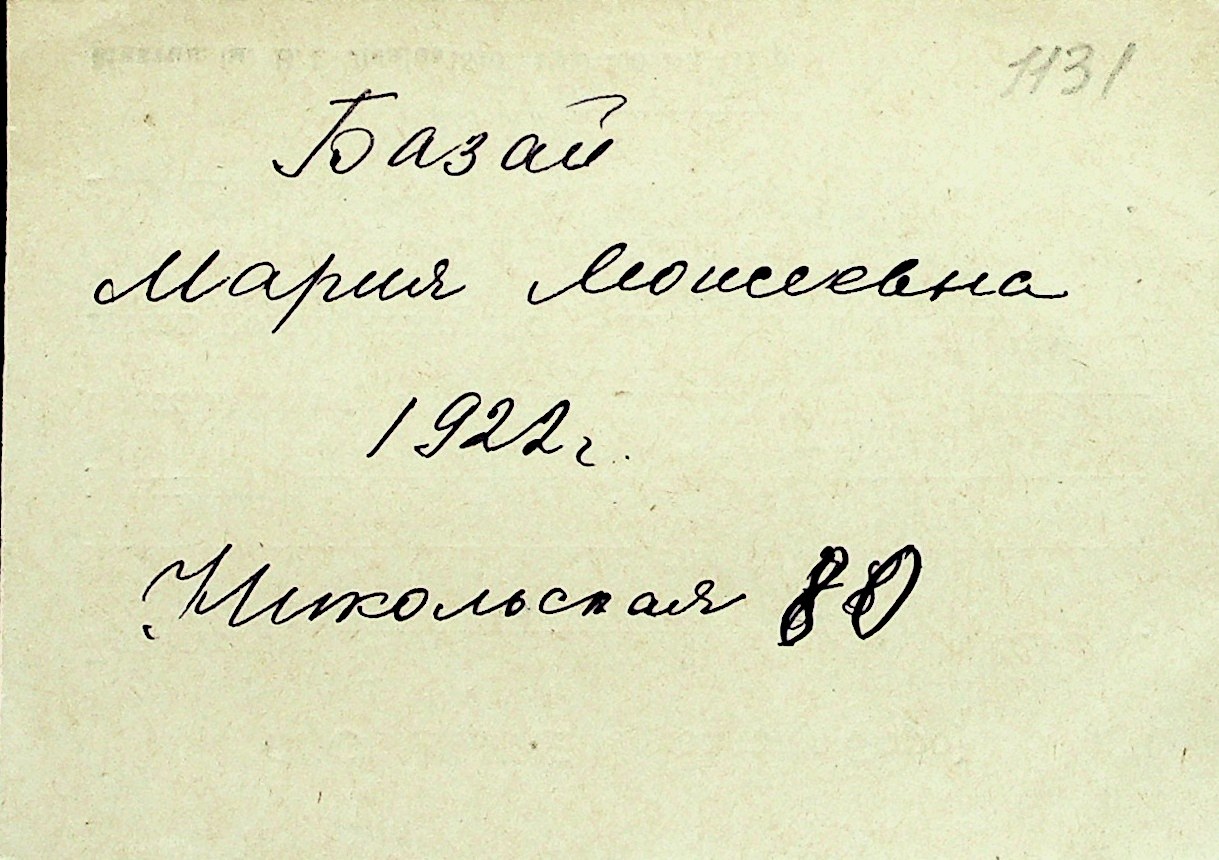 1131
Базай
Мария Моисеевна
1922 г.
Никольская